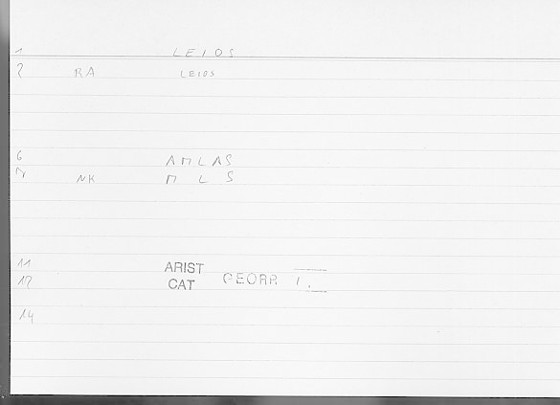 1 LEIOS
2 RA LEIOS
6 AMLAS
7 NK M L S
11 ARIST
12 CAT GEORR 1.
14